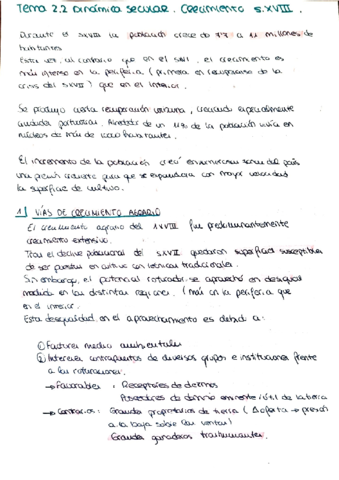 Tema 2.2 Dinámica secular. Crecimiento s.XVIII.
Durante el s.XVIII la población crece de 7'7 a 11 millones de
habitantes
Esta vez, al contrario que en el s.XVI, el crecimiento es
más intenso en la periferia (primera en recuperarse de la
crisis del s.XVII) que en el interior.
Se produjo cierta recuperación urbana, creciendo especialmente
ciudades portuarias. Alrededor de un 11% de la población vivía en
núcleos de más de 10000 habitantes.
El incremento de la población creó en numerosas zonas del país
una presión creciente para que se expandiera con mayor velocidad
la superficie de cultivo.
1) VÍAS DE CRECIMIENTO AGRARIO
El crecimiento agrario del s.XVIII fue predominantemente
crecimiento extensivo.
Tras el declive poblacional del s.XVII quedaron superficies susceptibles
de ser puestas en cultivo con técnicas tradicionales.
Sin embargo, el potencial roturador se aprovechó en desigual
medida en las distintas regiones. (más en la periferia que
en el interior.
Esta desigualdad en el aprovechamiento es debida a:
① Factores medio ambientales
② Intereses contrapuestos de diversos grupos e instituciones frente
a las roturaciones.
→ Favorables: Receptores de diezmos
Poseedores de dominio eminente/útil de la tierra
→ Contrarios: Grandes propietarios de tierra (Δ oferta → presión
a la baja sobre las rentas)
Grandes ganaderos trashumantes.